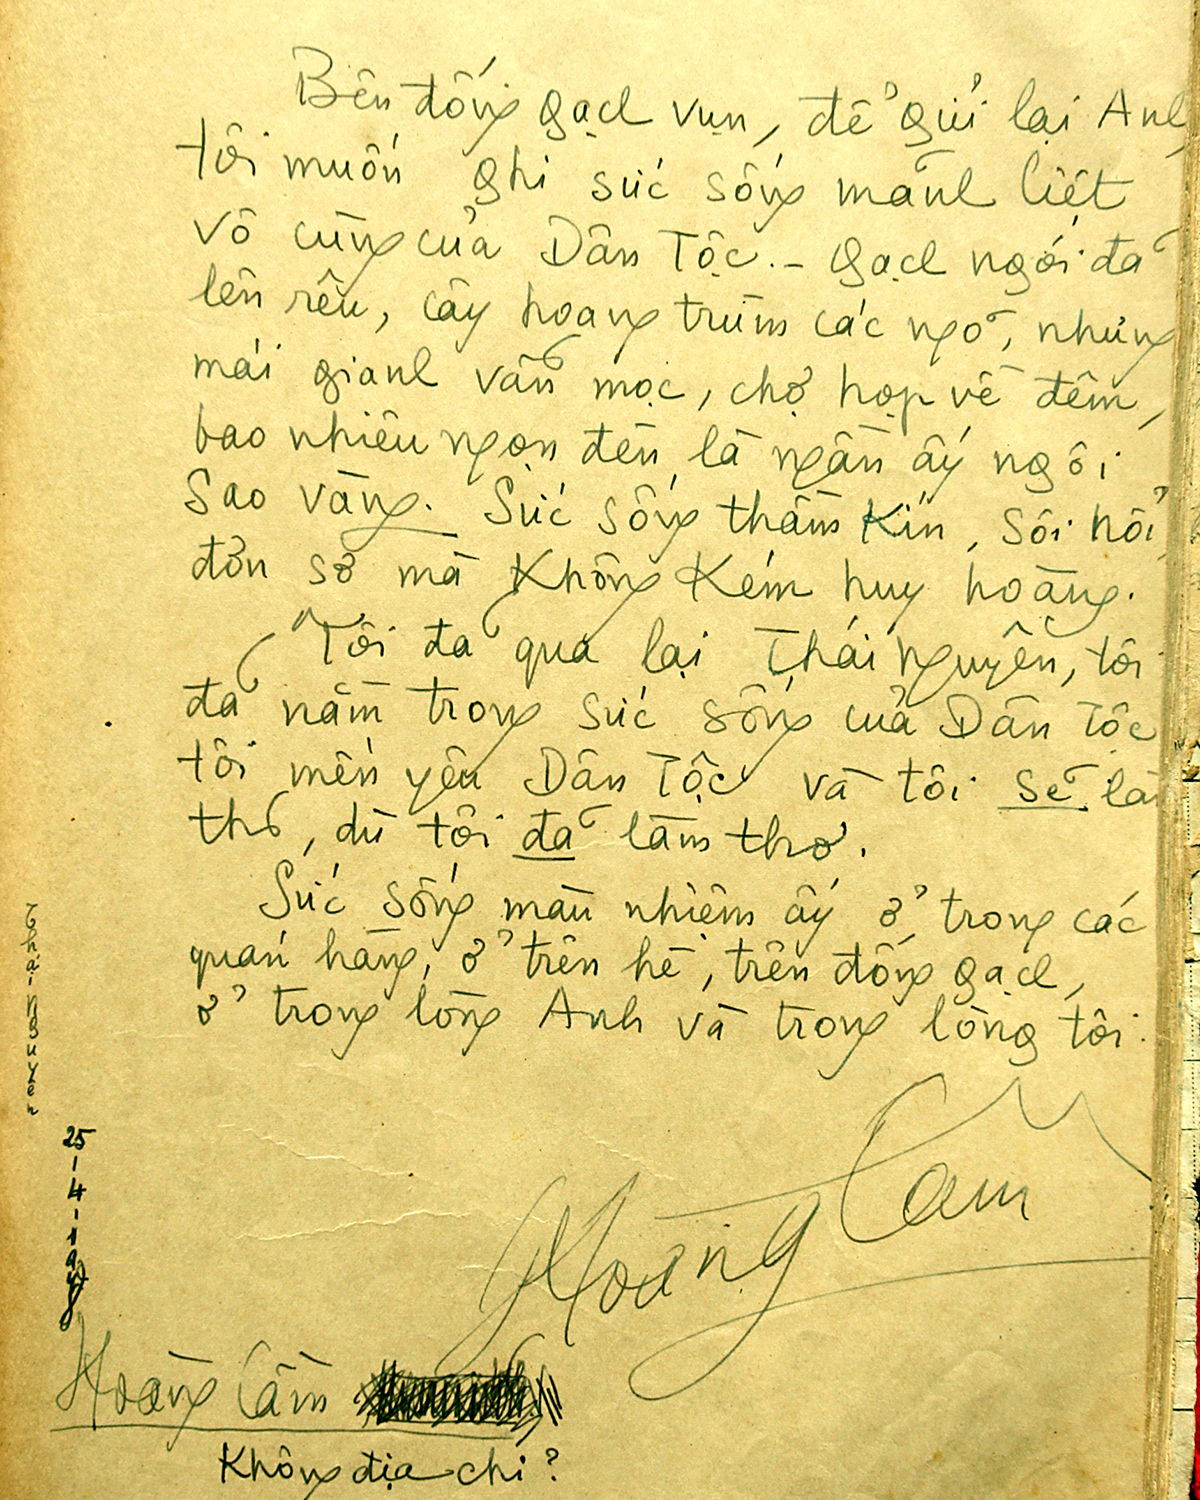 Bên đống gạch vụn, để gửi lại Anh,
tôi muốn ghi sức sống mãnh liệt
vô cùng của Dân Tộc. – Gạch ngói đã
lên rêu, cây hoang trùm các ngõ, nhưng
mái gianh vẫn mọc, chợ họp về đêm,
bao nhiêu ngọn đèn là ngần ấy ngôi
sao vàng. – Sức sống thầm kín, sôi nổi,
đơn sơ mà không kém huy hoàng.
Tôi đã qua lại Thái Nguyên, tôi
đã nằm trong sức sống của Dân Tộc
tôi mến yêu Dân Tộc và tôi sẽ là
thơ, dù tôi đã làm thơ.
Sức sống mầu nhiệm ấy ở trong các
quán hàng, ở trên hè, trên đống gạch,
ở trong lòng Anh và trong lòng tôi.
Hoàng Cầm
Thái-Nguyên
25-4-19
Hoàng Cầm
Không địa chỉ?